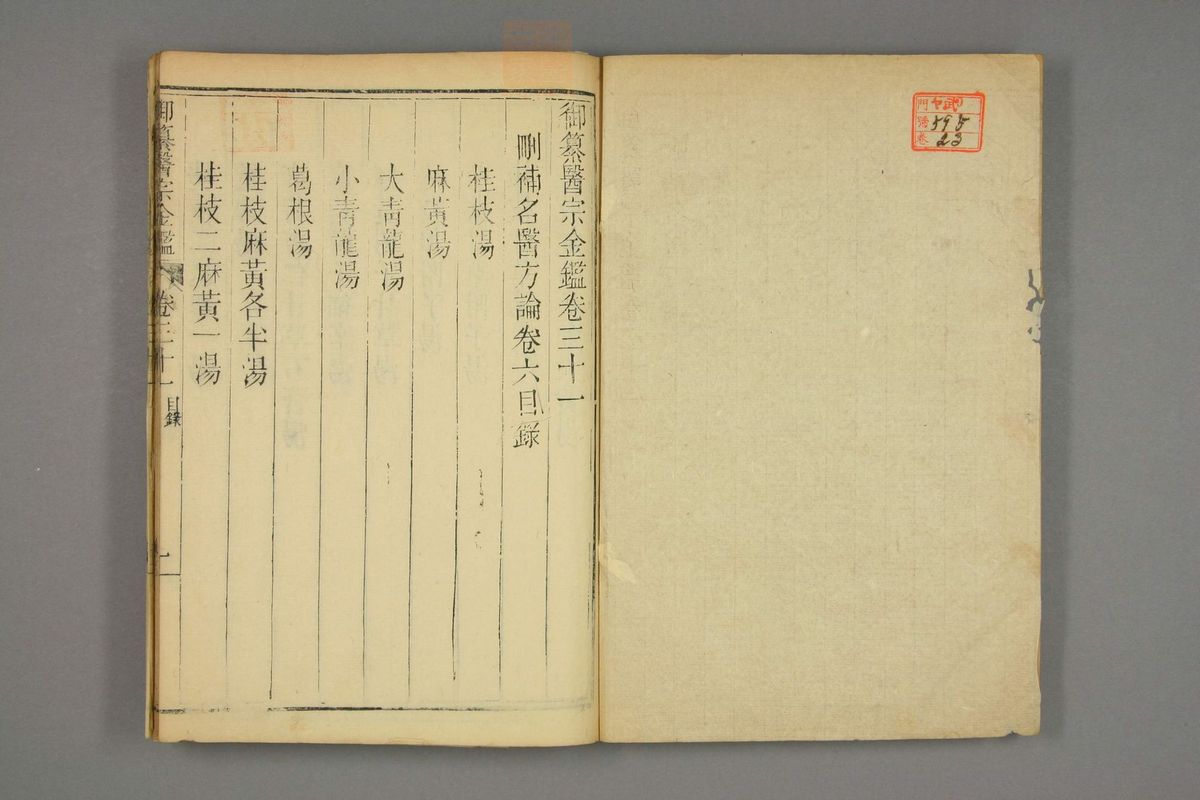 門 ヤ
號 595
卷 23
御纂醫宗金鑑卷三十一
刪補名醫方論卷六目錄
桂枝湯
麻黃湯
大青龍湯
小青龍湯
葛根湯
桂枝麻黃各半湯
桂枝二麻黃一湯
御纂醫宗金鑑 卷三十一 目錄